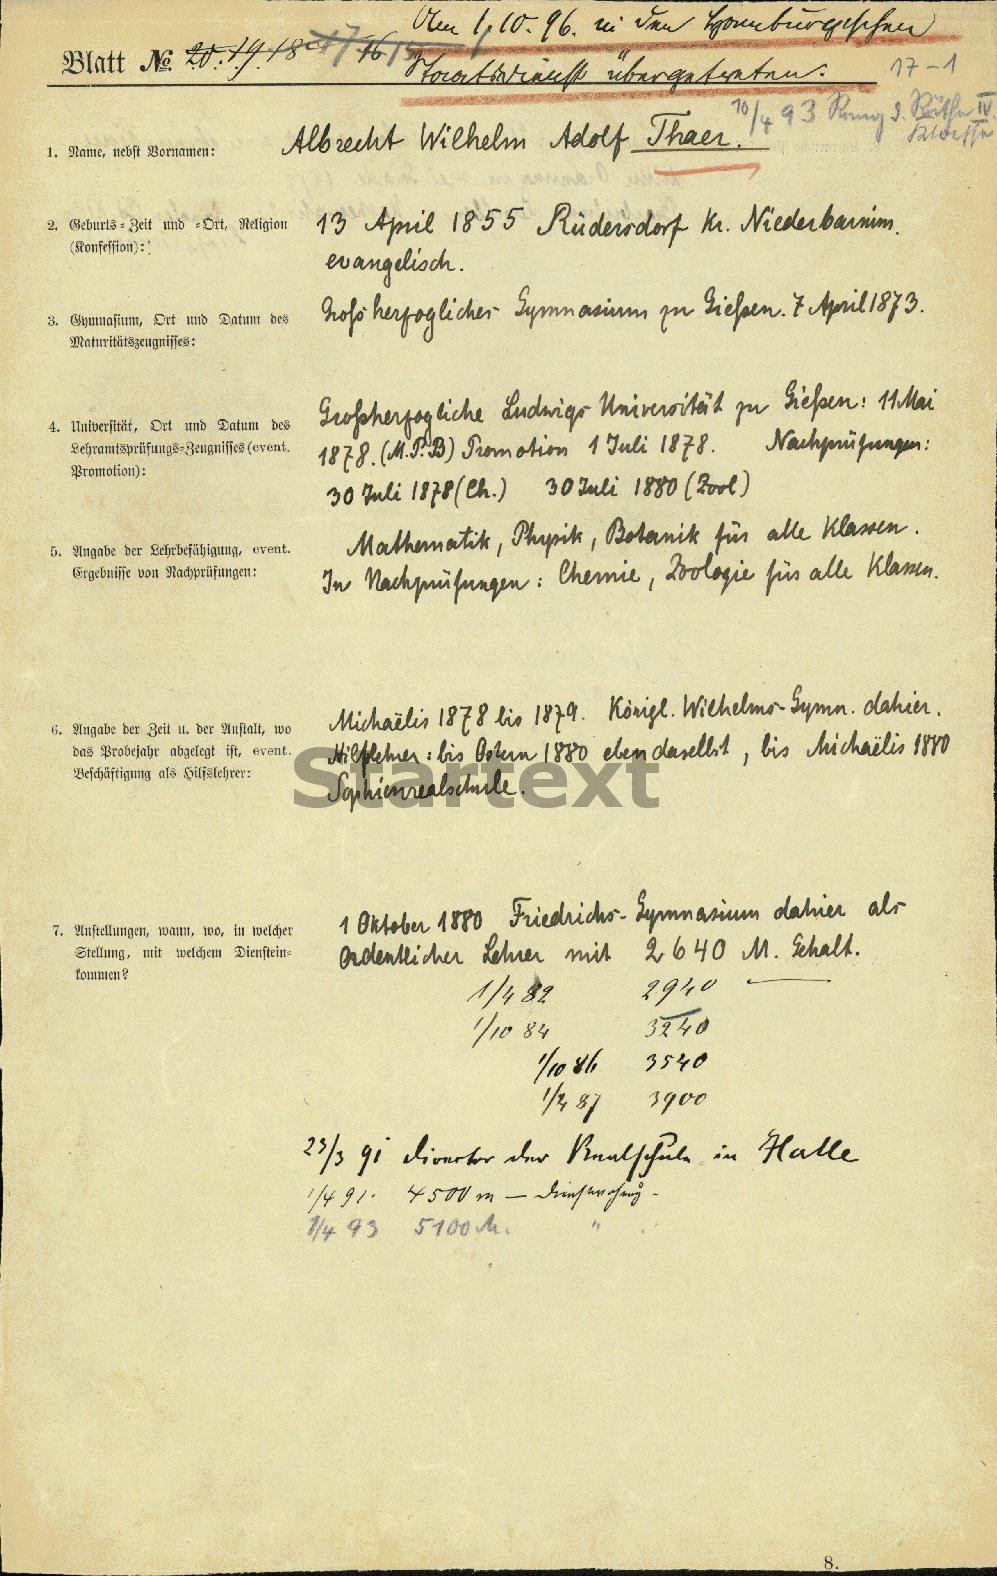 Am 1/10. 96. in den Hamburgischen
Staatsdienst übergetreten.
Blatt No 20. 19. 18 17 16
17-1
10/4 93 Rang d. Räthe IV
Klasse
1. Name, nebst Vornamen: Albrecht Wilhelm Adolf Thaer.
2. Geburts-Zeit und -Ort, Religion 13 April 1855 Rüdersdorf Kr. Niederbarnim.
(Konfession): evangelisch.
3. Gymnasium, Ort und Datum des Großherzogliches Gymnasium zu Gießen. 7 April 1873.
Maturitätszeugnisses:
4. Universität, Ort und Datum des Großherzogliche Ludwigs Universität zu Gießen: 11 Mai
Lehramtsprüfungs-Zeugnisses (event. 1878. (M. P. B) Promotion 1 Juli 1878. Nachprüfungen:
Promotion): 30 Juli 1878 (Ch.) 30 Juli 1880 (Zool)
5. Angabe der Lehrbefähigung, event. Mathematik, Physik, Botanik für alle Klassen.
Ergebnisse von Nachprüfungen: In Nachprüfungen: Chemie, Zoologie für alle Klassen.
6. Angabe der Zeit u. der Anstalt, wo Michaëlis 1878 bis 1879. Königl. Wilhelms-Gymn. dahier.
das Probejahr abgelegt ist, event. Hilfslehrer: bis Ostern 1880 ebendaselbst, bis Michaëlis 1880
Beschäftigung als Hilfslehrer: Sophienrealschule.
Startext
7. Anstellungen, wann, wo, in welcher 1 Oktober 1880 Friedrichs-Gymnasium dahier als
Stellung, mit welchem Dienstein- ordentlicher Lehrer mit 2640 M. Gehalt.
kommen?
1/4 82 2940
1/10 84 3240
1/10 86 3540
1/4 87 3900
23/3 91 Director der Realschule in Halle
1/4 91. 4500 m — Dienstwohng -
1/4 93 5100 M. "
8.